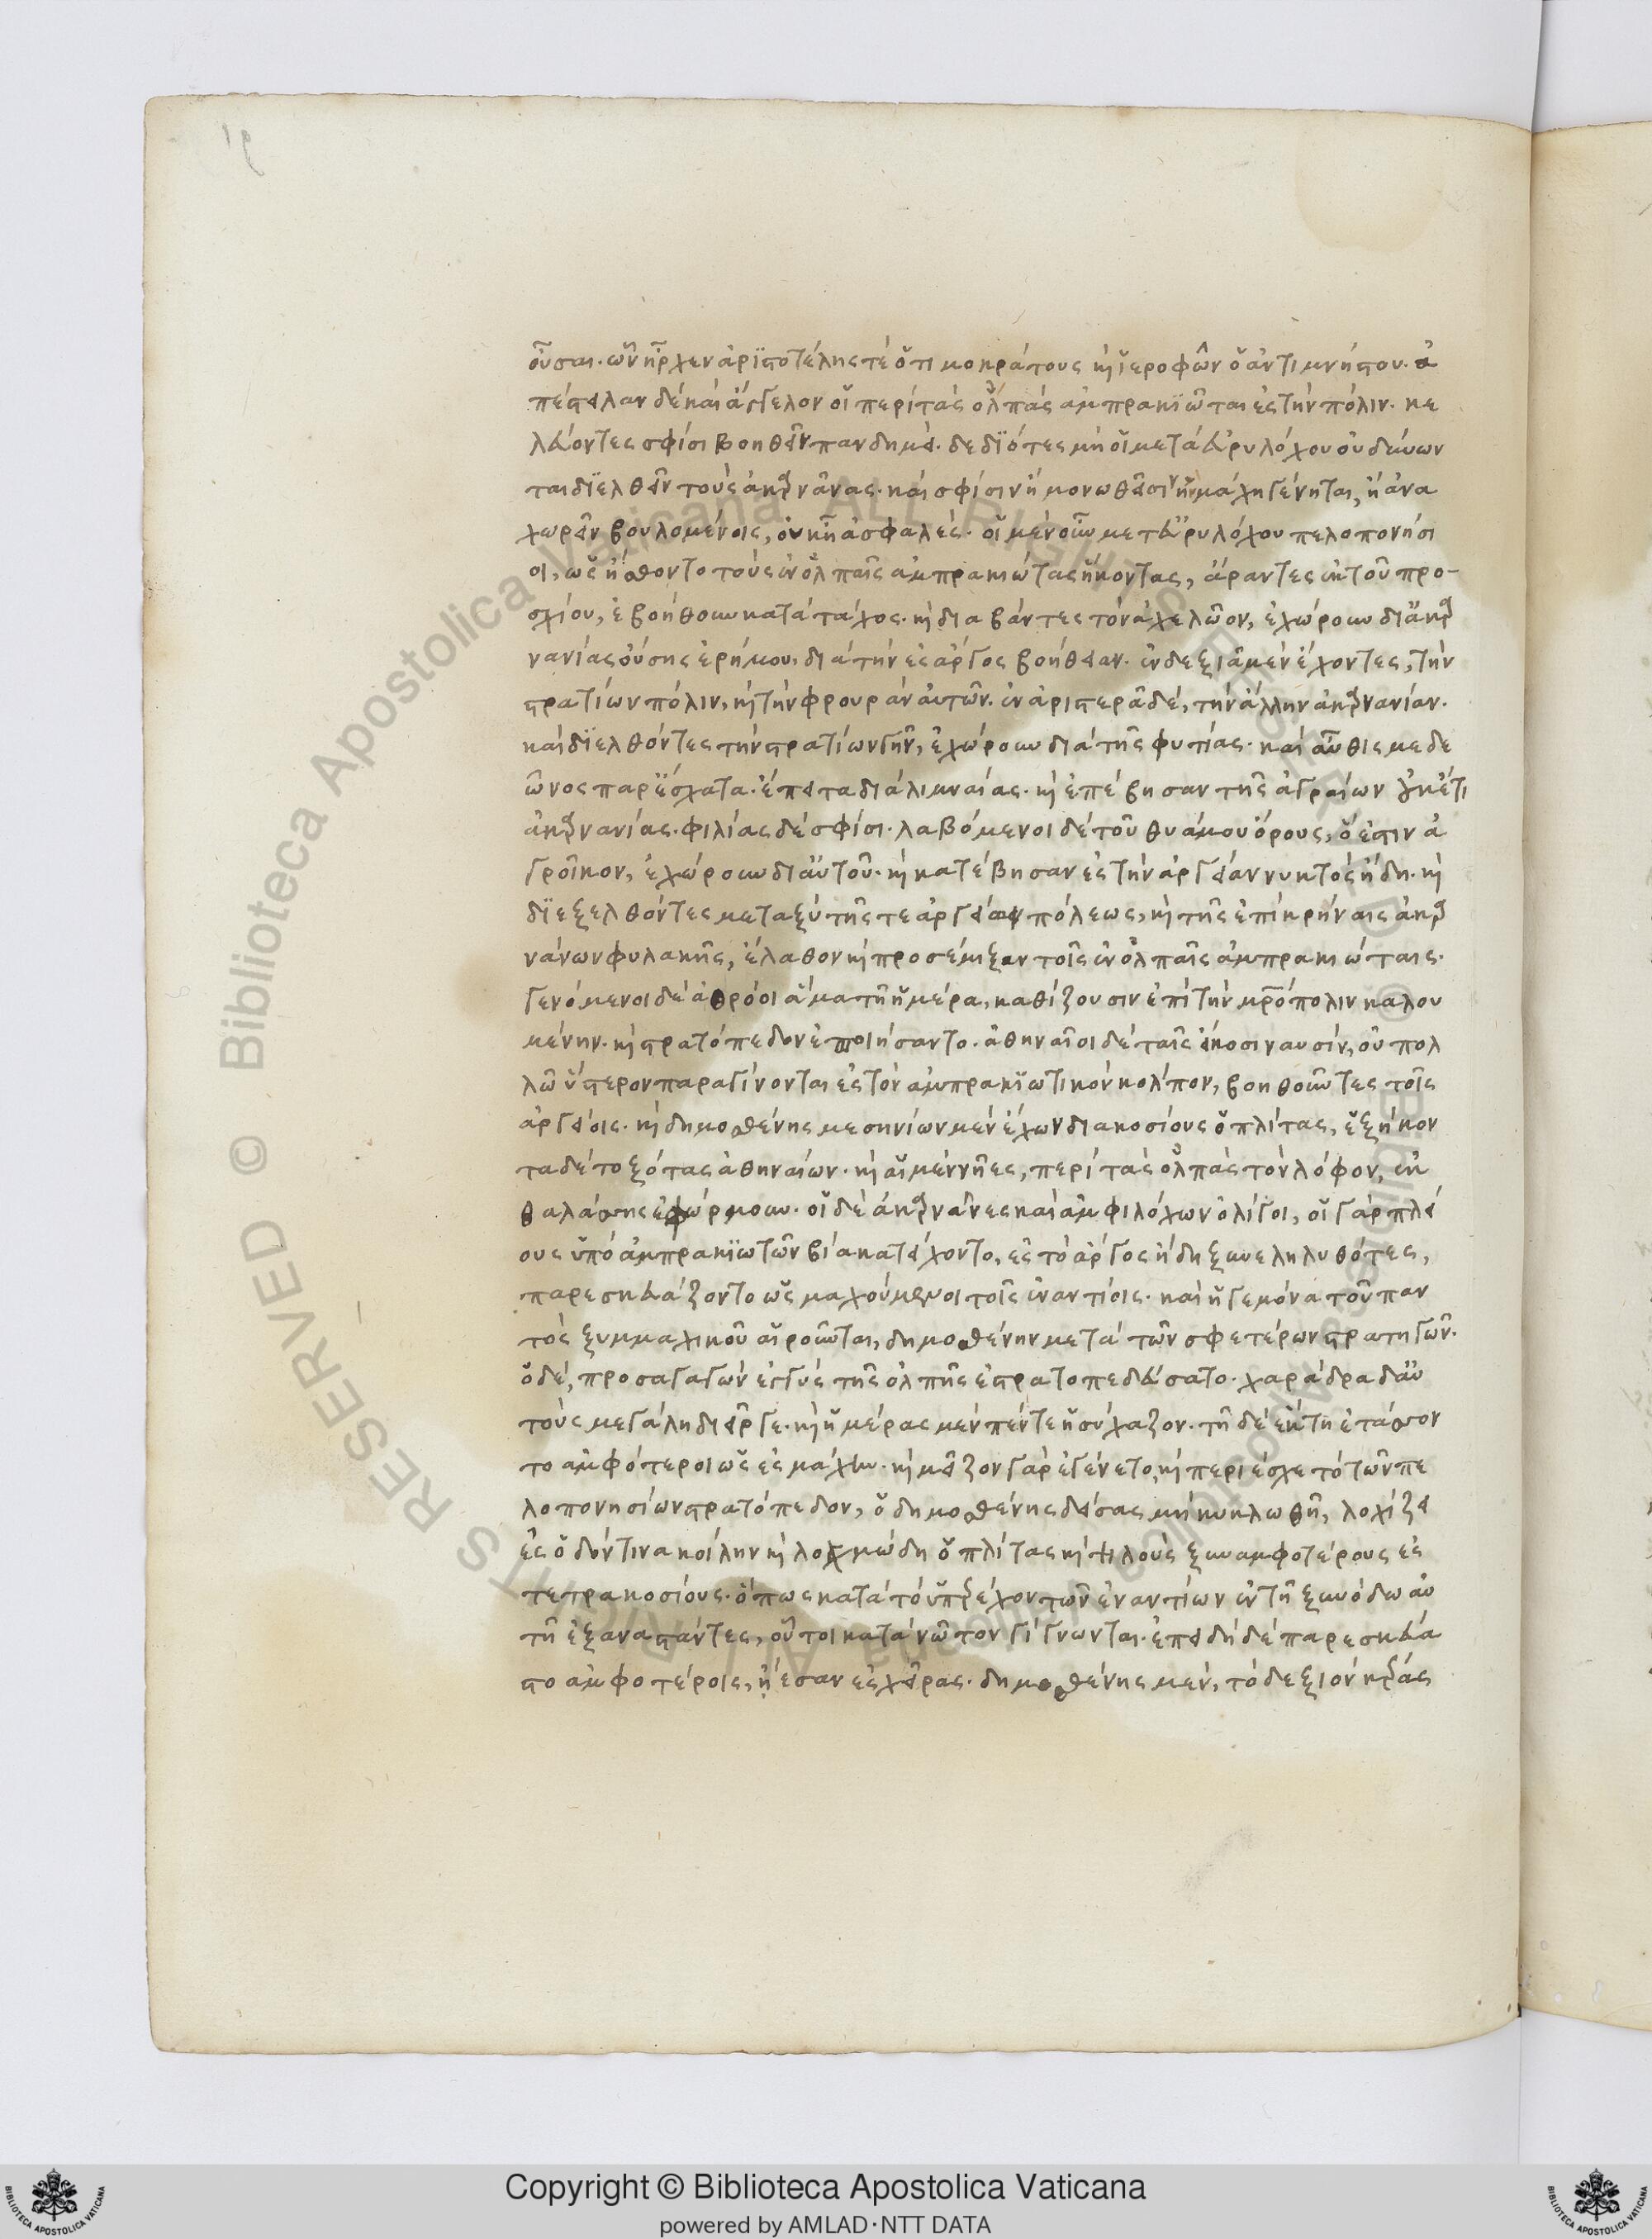 οὖσαι. ὧν ἦρχεν ἀριστοτέλης τὲ ὁ τιμοκράτους κὶ ἱεροφῶν ὁ ἀντιμνήστου. ἀ
πέστειλαν δὲ καὶ ἄγγελον οἱ περὶ τὰς ὄλπας ἀμπρακιῶται ἐς τὴν πόλιν. κε
λεύοντες σφίσι βοηθεῖν πανδημεί. δεδιότες μὴ οἱ μετὰ εὐρυλόχου οὐ δύνων
ται διελθεῖν τοὺς ἀκαρνᾶνας. καὶ σφίσιν ἢ μονωθεῖσιν ἡ μάχη γένηται, ἢ ἀνα
χωρεῖν βουλομένοις, οὐκ ἦ ἀσφαλές. οἱ μὲν οὖν μετ' εὐρυλόχου πελοπονήσι
οι, ὡς ἤσθοντο τοὺς ἐν ὄλπαις ἀμπρακιώτας ἥκοντας, ἄραντες ἐκ τοῦ προ-
σχίου, ἐβοήθουν κατὰ τάχος. κὶ διαβάντες τὸν ἀχελῶον, ἐχώρουν δι' ἀκαρ
νανίας οὔσης ἐρήμου, διὰ τὴν ἐς ἄργος βοήθειαν. ἐν δεξιᾶ μὲν ἔχοντες, τὴν
στρατίων πόλιν, κὶ τὴν φρουρὰν αὐτῶν. ἐν ἀριστερᾶ δὲ, τὴν ἄλλην ἀκαρνανίαν.
καὶ διελθόντες τὴν στρατίων γῆν, ἐχώρουν διὰ τῆς φυτίας. καὶ αὖθις μεδε
ῶνος παρ' ἔσχατα. ἔπειτα διὰ λιμναίας. κὶ ἐπέβησαν τῆς ἀγραίων οὐκέτι
ἀκαρνανίας. φιλίας δὲ σφίσι. λαβόμενοι δὲ τοῦ θυάμου ὄρους, ὅ ἐστιν ἀ
γροῖκον, ἐχώρουν δι' αὐτοῦ. κὶ κατέβησαν ἐς τὴν ἀργείαν νυκτὸς ἤδη. κὶ
διεξελθόντες μεταξὺ τῆς τε ἀργείων πόλεως, κὶ τῆς ἐπὶ κρήναις ἀκαρ
νάνων φυλακῆς, ἔλαθον κὶ προσέμιξαν τοῖς ἐν ὄλπαις ἀμπρακιώταις.
γενόμενοι δὲ ἀθρόοι ἅμα τῆ ἡμέρα, καθίζουσιν ἐπὶ τὴν μρόπολιν καλου
μένην. κὶ στρατόπεδον ἐποιήσαντο. ἀθηναῖοι δὲ ταῖς εἴκοσι ναυσὶν, οὐ πολ
λῶ ὕστερον παραγίνονται ἐς τὸν ἀμπρακιωτικὸν κόλπον, βοηθοῦντες τοῖς
ἀργείοις. κὶ δημοσθένης μεσηνίων μὲν ἔχων διακοσίους ὁπλίτας, ἑξήκον
τα δὲ τοξότας ἀθηναίων. κὶ αἱ μὲν νῆες, περὶ τὰς ὄλπας τὸν λόφον, ἐκ
θαλάσσης ἐφώρμουν. οἱ δὲ ἀκαρνᾶνες καὶ ἀμφιλόχων ὀλίγοι, οἱ γὰρ πλεί
ους ὑπὸ ἀμπρακιωτῶν βία κατείχοντο, ἐς τὸ ἄργος ἤδη ξυνεληλυθότες,
παρεσκευάζοντο ὡς μαχούμενοι τοῖς ἐναντίοις. καὶ ἡγεμόνα τοῦ παν
τὸς ξυμμαχικοῦ αἱροῦνται, δημοσθένην μετὰ τῶν σφετέρων στρατηγῶν.
ὁ δὲ, προσαγαγὼν ἐγγὺς τῆς ὄλπης ἐστρατοπεδεύσατο. χαράδρα δ' αὐ
τοὺς μεγάλη διεῖργε. κὶ ἡμέρας μὲν πέντε ἡσύχαζον. τῆ δὲ ἕκτη ἐτάσσον
το ἀμφότεροι ὡς ἐς μάχην. κὶ μεῖζον γὰρ ἐγένετο, κὶ περιέσχε τὸ τῶν πε
λοπονησίων στρατόπεδον, ὁ δημοσθένης δείσας μὴ κυκλωθῆ, λοχίζει
ἐς ὁδόν τινα κοίλην κὶ λοχμώδη ὁπλίτας κὶ ψιλοὺς ξυναμφοτέρους ἐς
τετρακοσίους. ὅπως κατὰ τὸ ὑπερέχον τῶν ἐναντίων ἐν τῆ ξυνόδω αὐ
τῆ ἐξαναστάντες, οὗτοι κατὰ νῶτον γίγνωνται. ἐπειδὴ δὲ παρεσκεύα
στο ἀμφοτέροις, ἤεσαν ἐς χεῖρας. δημοσθένης μὲν, τὸ δεξιὸν κέρας